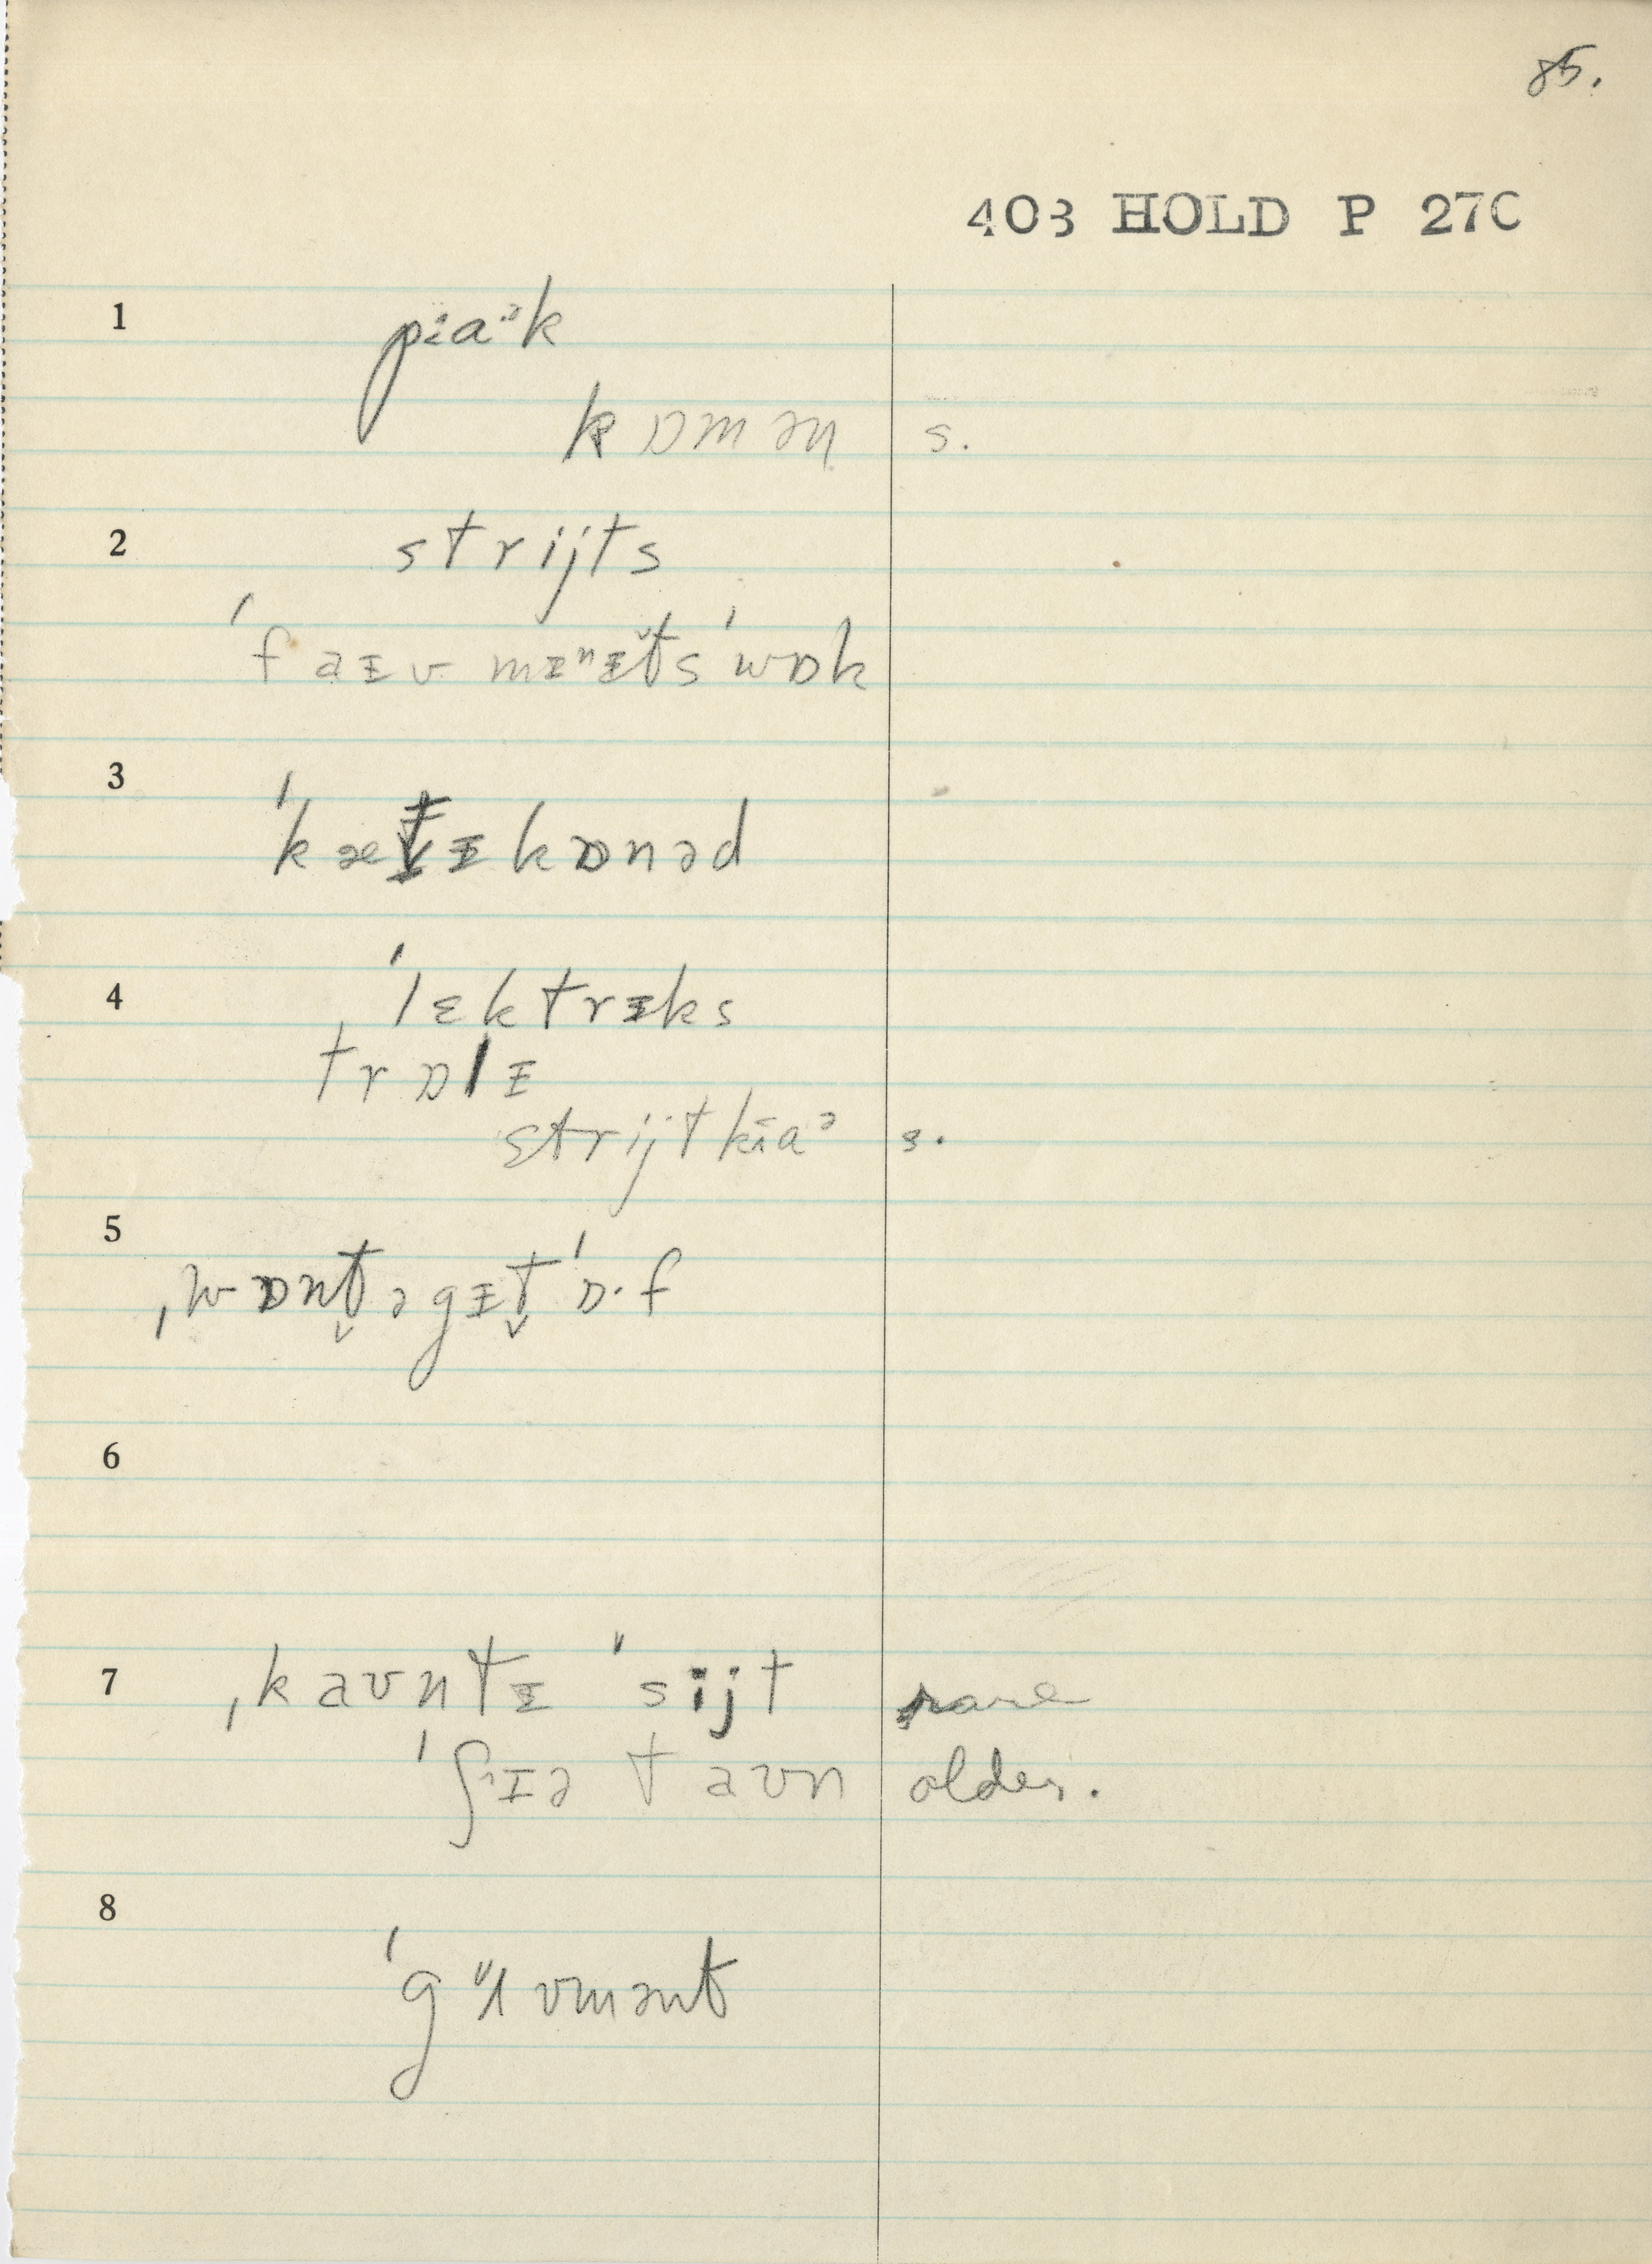 85.
403 HOLD P 27C
1 pi̵aᵊk
kɒmən s.
2 strijts
ˈfaɪv mɪⁿɪt̬s ˈwɒk
3 ˈkæt̬ɪkɒnəd
4 ˈlɛktrɪks
trɒlɪ
strijtki̵aᵊ s.
5 ˌwɒnt̬əgɪt̬ ˈɒ·f
6
7 ˌkaʊntɪ ˈsijt rare
ˈʃɪə taʊn older.
8 ˈgʌvmənt